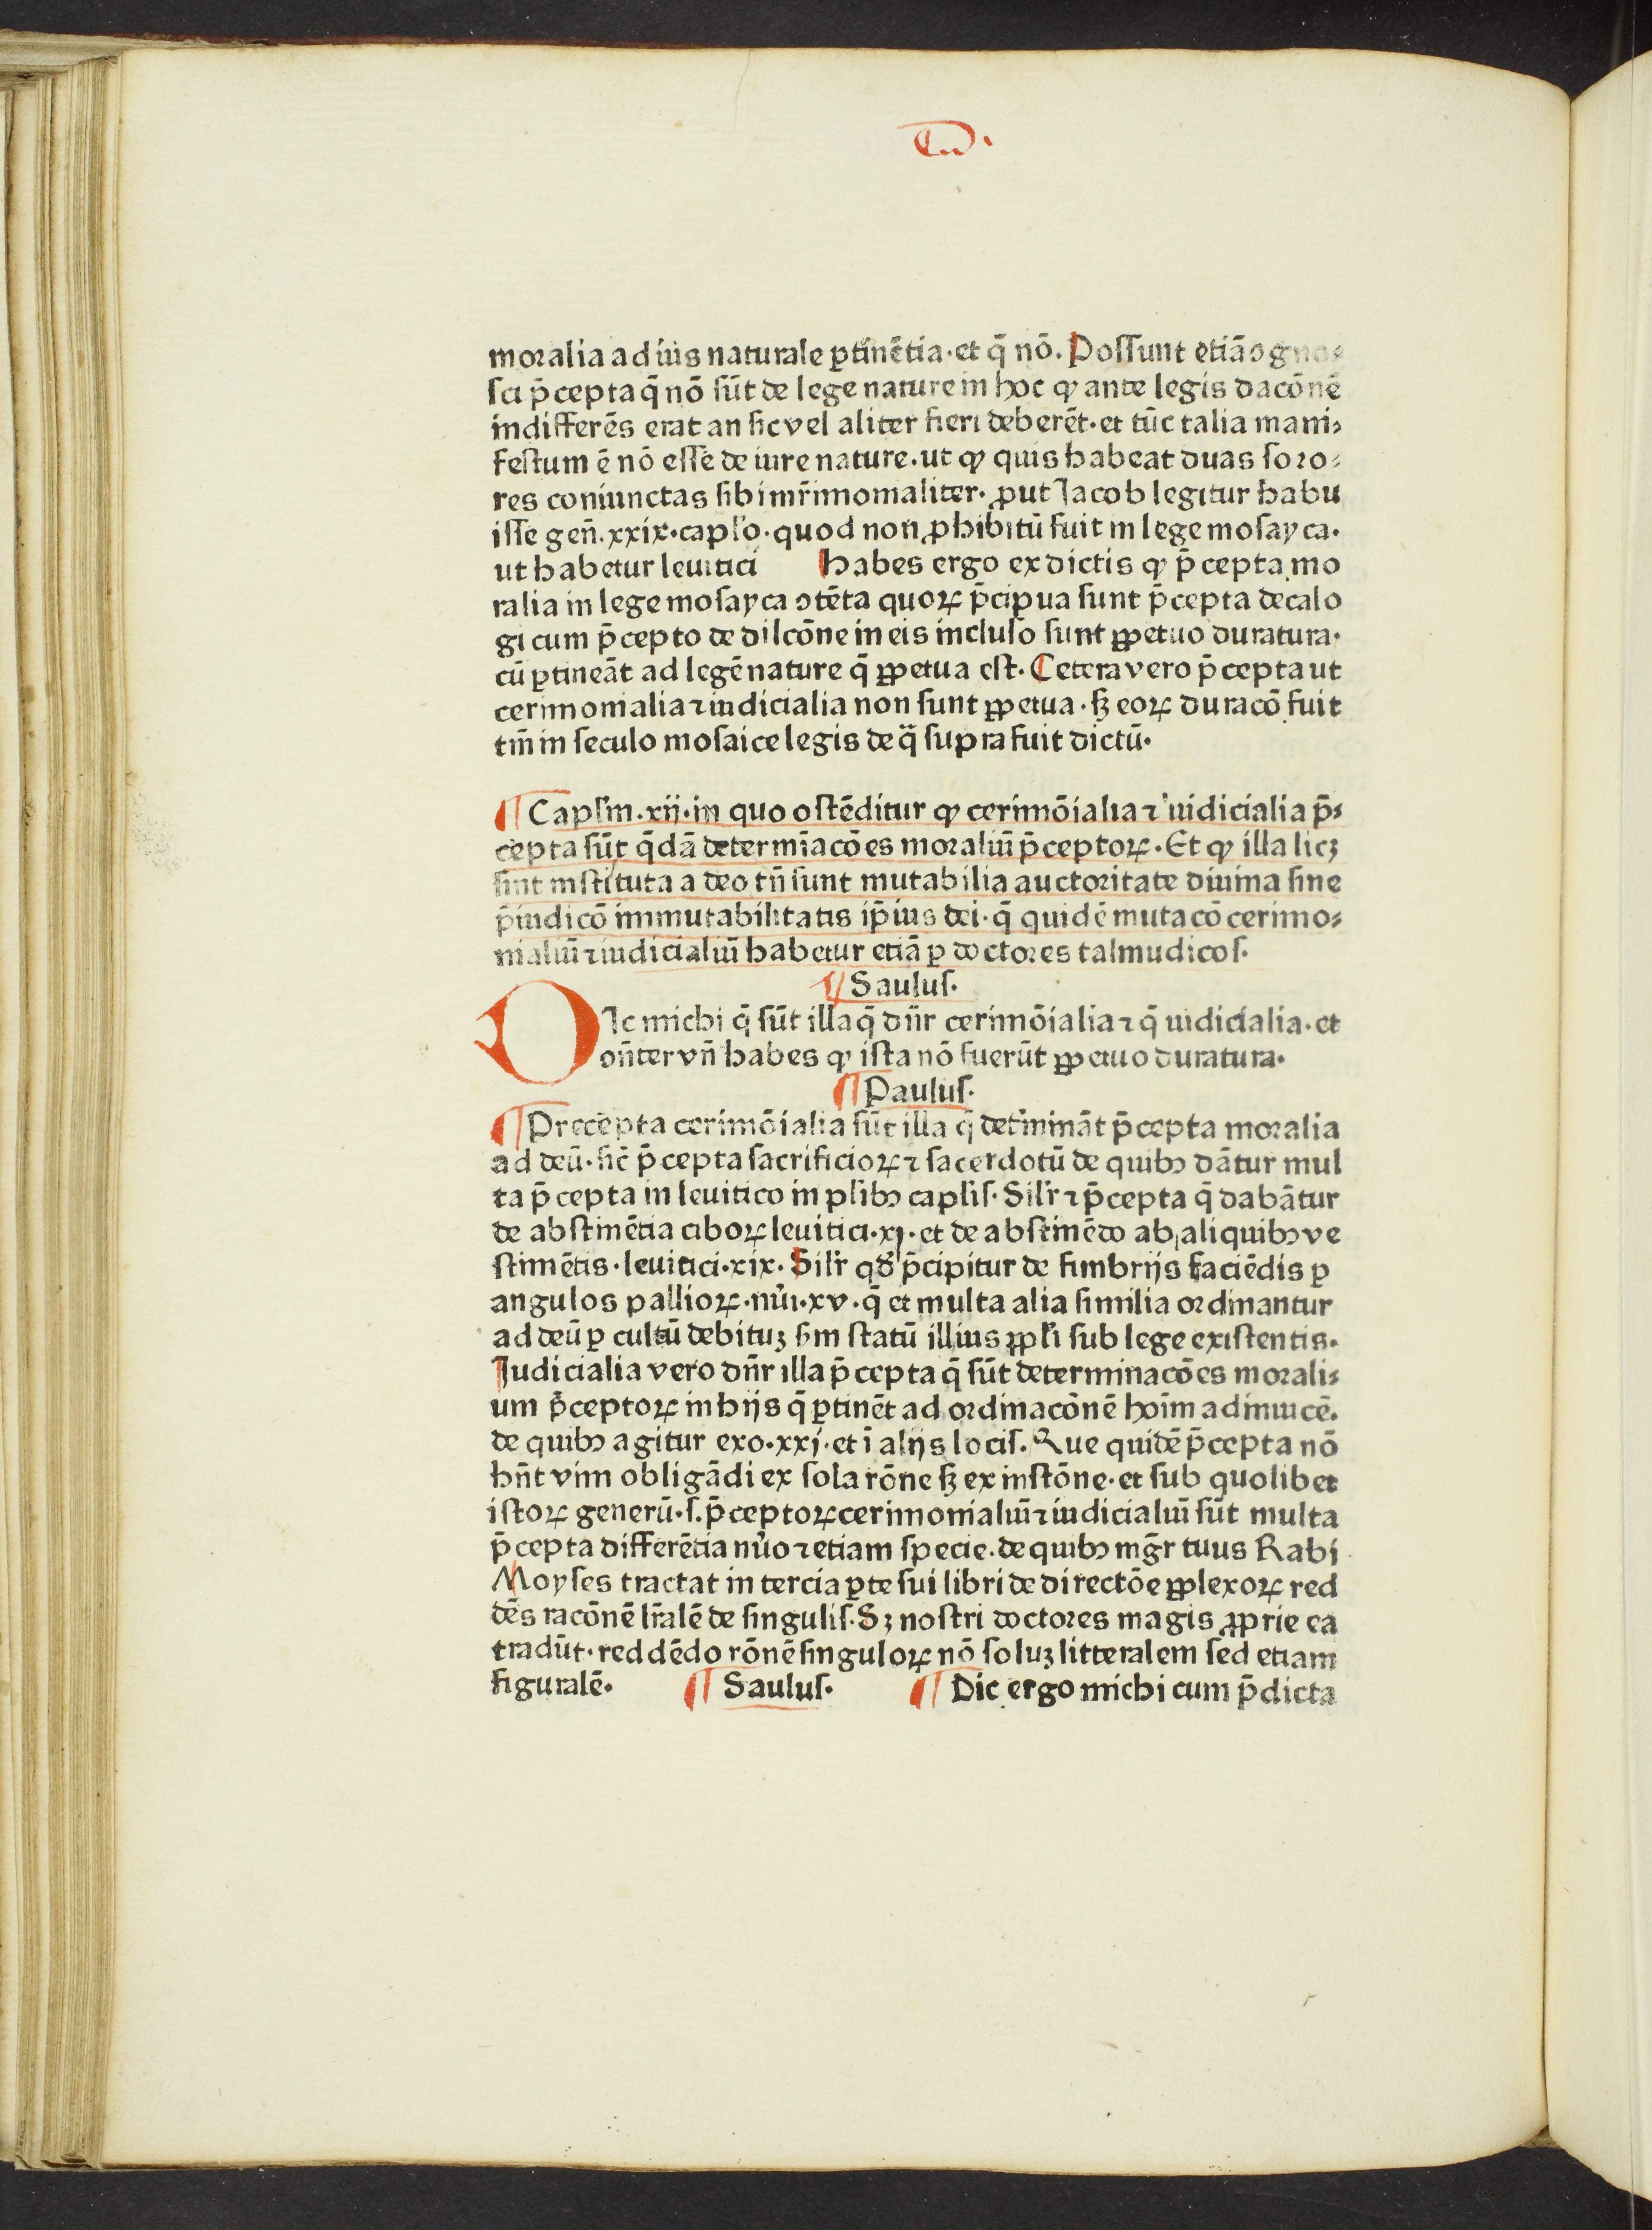 moralia ad ius naturale ꝑtinētia·et q̄ nō. Poſſunt etiā ↄgno⸗
ſci p̄cepta q̄ nō ſūt de lege nature in hoc ꝙ ante legis dacōnē
indifferēs erat an ſic vel aliter fieri deberēt·et tūc talia mani⸗
feſtum ē nō eſſe de iure nature·ut ꝙ quis habeat duas ſoro⸗
res coniunctas ſibi mr̄imonialiter·ꝓut Jacob legitur habu
iſſe gen̄.xxix·caplo·quod non ꝓhibitū fuit in lege moſayca·
ut habetur leuitici habes ergo ex dictis ꝙ p̄cepta mo
ralia in lege moſayca ↄtēta quoꝝ p̄cipua ſunt p̄cepta decalo
gi cum p̄cepto de dilcōne in eis incluſo ſunt ꝑpetuo duratura·
cū ꝑtineāt ad legē nature q̄ ꝑpetua eſt. Cetera vero p̄cepta ut
cerimonialia ⁊ iudicialia non ſunt ꝑpetua·ſꝫ eoꝝ duracō fuit
tm̄ in ſeculo moſaice legis de q̄ ſupra fuit dictū·
¶ Capſm.xij·in quo oſtēditur ꝙ cerimōialia ⁊ iudicialia p̄⸗
cepta ſūt q̄dā determīacōes moraliū p̄ceptoꝝ·Et ꝙ illa licꝫ
ſint inſtituta a deo tn̄ ſunt mutabilia auctoritate diuina ſine
p̄iudicō immutabilitatis ip̄ius dei·q̄ quidē mutacō cerimo⸗
nialiū ⁊ iudicialiū habetur etiā ꝑ doctores talmudicoſ·
¶ Saulus·
DIc michi q̄ ſūt illa q̄ dn̄r cerimōialia ⁊ q̄ iudicialia·et
on̄ter vn̄ habes ꝙ iſta nō fuerūt ꝑpetuo duratura·
¶ Pauluſ·
¶ Precepta cerimōialia ſūt illa q̄ det̄mināt p̄cepta moralia
ad deū·ſic̄ p̄cepta ſacrificioꝝ ⁊ ſacerdotū de quibꝰ dātur mul
ta p̄cepta in leuitico in pl̄ibꝰ capliſ·Silr̄ ⁊ p̄cepta q̄ dabātur
de abſtinētia ciboꝝ leuitici·xj·et de abſtinēdo ab aliquibꝰ ve
ſtimētis·leuitici·xix·Silr̄ qđ p̄cipitur de fimbrijs faciēdis ꝑ
angulos pallioꝝ·nūi·xv·q̄ et multa alia ſimilia ordinantur
ad deū ꝑ cultū debituꝫ ẜm ſtatū illius ꝓpl̄i ſub lege exiſtentis·
Judicialia vero dn̄r illa p̄cepta q̄ ſūt determinacōes morali⸗
um p̄ceptoꝝ in hijs q̄ ꝑtinēt ad ordinacōnē hoīm adinuicē·
de quibꝰ agitur exo·xxj·et ī alijs lociſ·Que quidē p̄cepta nō
hn̄t vim obligādi ex ſola rōne ſꝫ ex inſtōne·et ſub quolibet
iſtoꝝ generū·ſ.p̄ceptoꝝ cerimonialiū ⁊ iudicialiū ſūt multa
p̄cepta differētia nūo ⁊ etiam ſpecie·de quibꝰ mḡr tuus Rabi
Moyſes tractat in tercia ꝑte ſui libri de directōe ꝑplexoꝝ red
dēs racōnē lr̄alē de ſinguliſ·Sꝫ noſtri doctores magis ꝓprie ea
tradūt·reddēdo rōnē ſinguloꝝ nō ſoluꝫ litteralem ſed etiam
figuralē· ¶ Sauluſ· ¶ Dic ergo michi cum p̄dicta